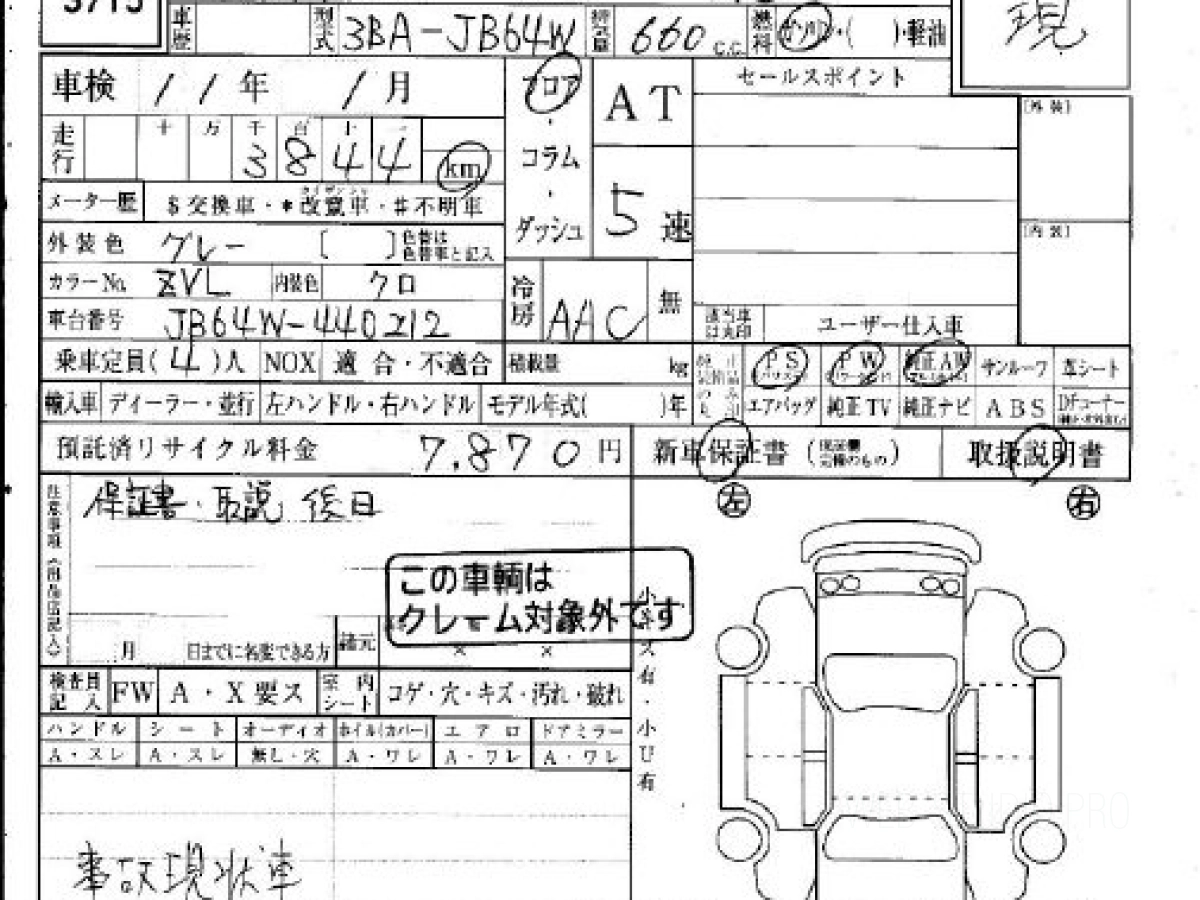 3715
車歴 型式 3BA-JB64W 排気量 660 C.C. 燃料 ガソリン・( )・軽油
現
車検 11年 1月 フロア・コラム・ダッシュ AT 5速 セールスポイント
[外装]
走行 十 万 千 百 十 一
3 8 4 4 km
メーター歴 $交換車・*改竄車・#不明車
カイザンシャ
[内装]
外装色 グレー [ ] 色替は色替車と記入
カラーNo. ZVL 内装色 クロ 冷房 AAC 無
車台番号 JB64W-440212 該当車は丸印 ユーザー仕入車
乗車定員( 4 )人 NOX 適合・不適合 積載量 kg PS PW 純正AW サンルーフ 革シート
輸入車 ディーラー・並行 左ハンドル・右ハンドル モデル年式( )年 エアバッグ 純正TV 純正ナビ ABS
預託済リサイクル料金 7,870 円 新車保証書 取扱説明書
保証書・取説 後日 左 右
注意事項
この車輌は
クレーム対象外です
月 日までに名変できる方 諸元 × ×
検査員記入 FW A・X要ス 室内シート コゲ・穴・キズ・汚れ・破れ
ハンドル シート オーディオ ホイル(カバー) エアロ ドアミラー
A・スレ A・スレ 無し・穴 A・ワレ A・ワレ A・ワレ
小キズ有・小U有
PRO
事故現状車